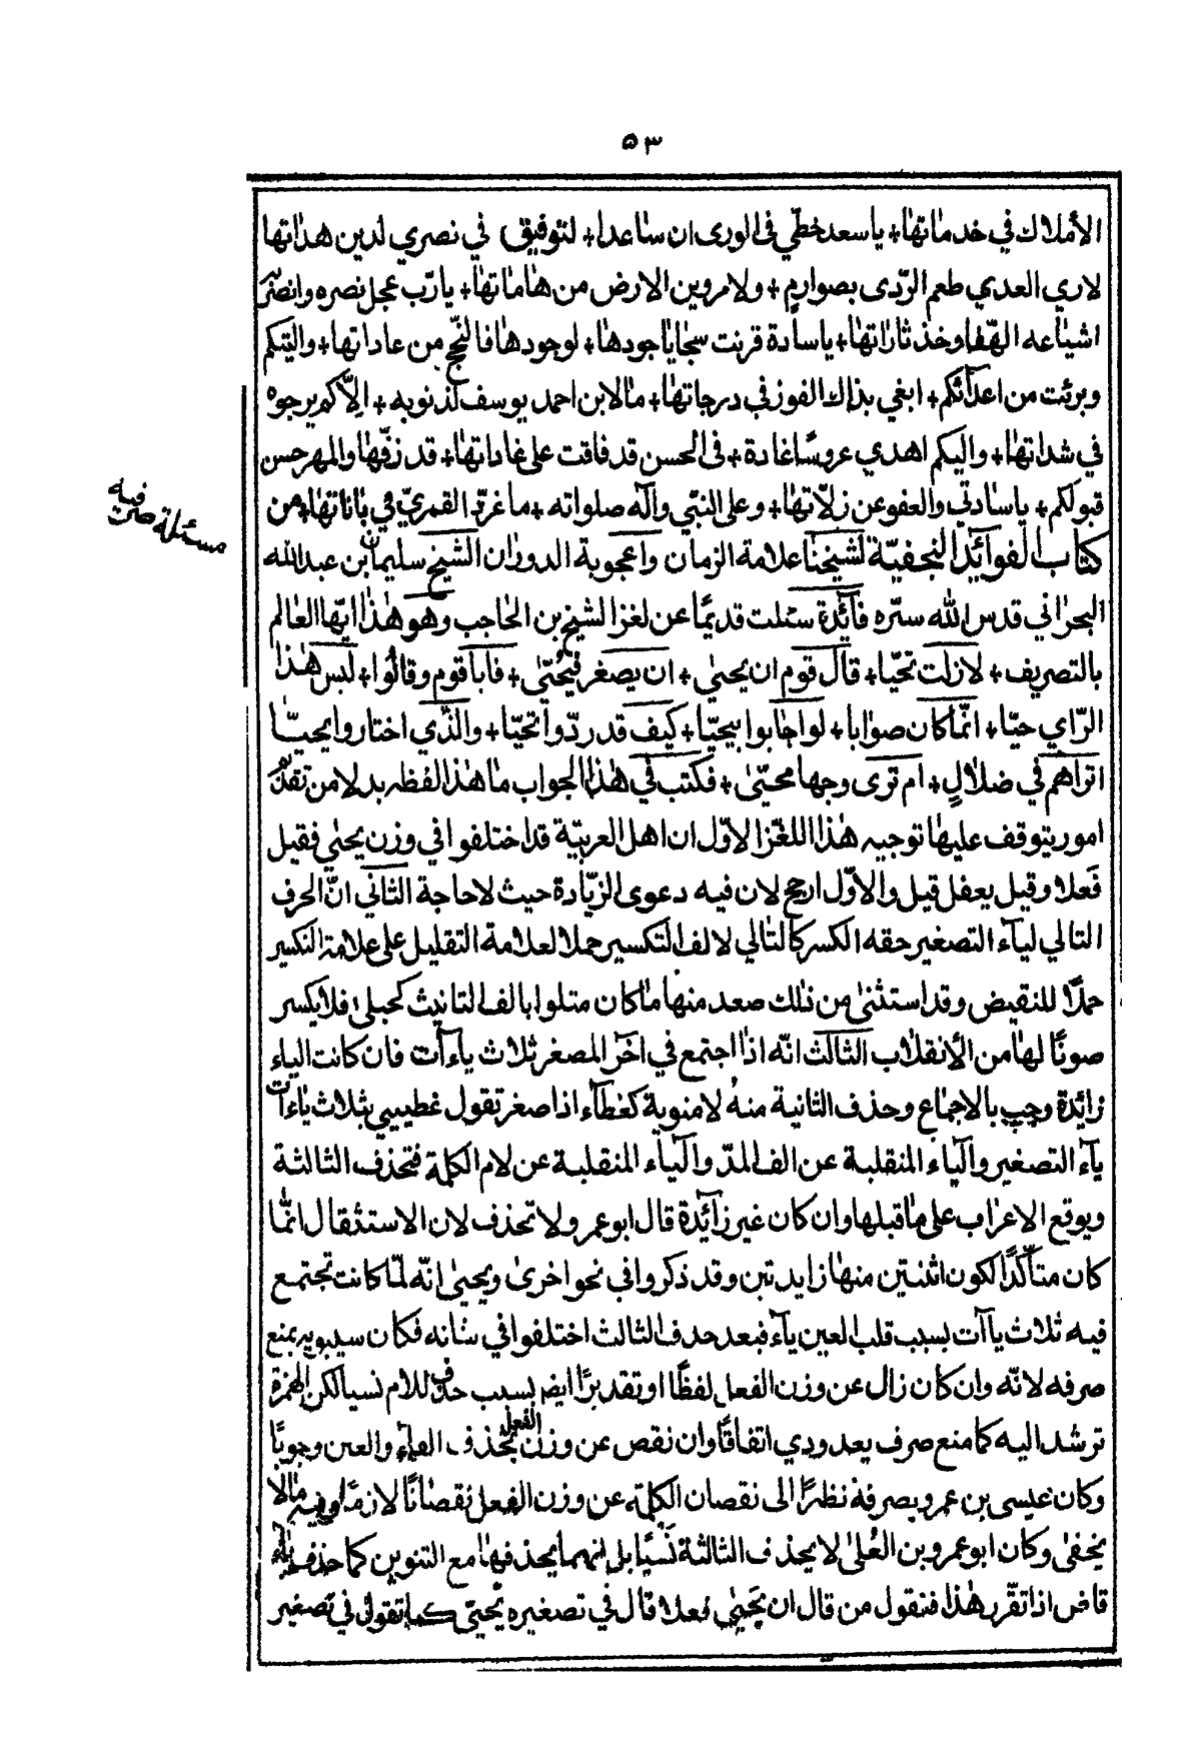 ٥٣
الأملاك في خدماتها + يا سعد خطّي فى الورى ان ساعدا + لتوفيق في نصري لدين هداتها
لاري العدي طعم الرّدى بصوارمٍ + ولاروين الارض من هاماتها + يا ربّ عجل نصره وانصر
اشياعه الهفا وخذ ثاراتها + يا سادة قرنت سجايا جودها + لوجودها فالنجّح من عاداتها + واليتكم
وبرئت من اعدآئكم + ابغي بذاك الفوز في درجاتها + ما لابن احمد يوسف لذنوبه + الاّكم يرجوه
في شداتها + واليكم اهدي عروسًا غادة + فى الحسن قد فاقت على غاداتها + قد زفّها والمهر حسن
قبولكم + يا سادتي والعفو عن زلاّتها + وعلى النبّي وآله صلواته + ما غرّد القمريّ في باناتها + من
كتاب الفوآئد النجفيّة لشيخنا علامة الزمان واعجوبة الدوران الشيخ سليمان بن عبد الله
البحراني قدس الله سرّه فآئدة سئلت قديمًا عن لغز الشيخ بن الحاجب وهو هذا ايّها العالم
بالتصريف + لازلت تحيّا + قال قوم ان يحيىٰ + ان يصغر فيحُيّى + فابا قوم وقالوا + ليس هذا
الرّاي حيّا + انمّا كان صوابا + لو اجابوا بيحيّا + كيف قد ردّوا تحيّا + والذّي اختاروا يحيّا
اتراهم في ضلالٍ + ام ترى وجها محيّى + فكتب في هذا الجواب ما هذا لفظه بد لا من تقدّم
امور يتوقف عليها توجيه هذا اللغز الاوّل ان اهل العربيّة قد اختلفوا في وزن يحيٰى فقيل
فَعلا وقيل يعفل قيل والاوّل ارجح لان فيه دعوى الزيّادة حيث لا حاجة الثاني انّ الحرف
التالي ليآء التصغير حقه الكسر كالتالي لالف التكسير حملا لعلامة التقليل على علامة التكسير
حملاً للنقيض وقد استثنىٰ من ذلك صعد منها ما كان متلوا بالف التانيث كحبلى فلا يكسر
صونًا لها من الأنقلاب الثالث انّه اذا اجتمع في اخر المصغر ثلاث ياءآت فان كانت الياء
زائدة وجب بالاجماع وحذف الثانية منهُ لامنوية كغطآء اذا صغر تقول غطييي بثلاث ياءات
يآء التصغير والّياء المنقلبة عن الف المدّ والّياء المنقلبة عن لام الكلمة فتحذف الثالثة
ويوقع الاعراب على ما قبلها وان كان غير زآئدة قال ابو عمر ولا تحذف لان الاستثقال انمّا
كان متأكّدًا لكون اثنتين منها زايدتين وقد ذكروا في نحو اخرىٰ ويحيىٰ انّه لمّا كانت تجتمع
فيه ثلاث ياآت بسبب قلب العين يآء فبعد حدف الثالث اختلفوا في شانه فكان سيبويه بمنع
صرفه لانّه وان كان زال عن وزن الفعل لفظًا او تقديرًا ايضا بسبب حذف للام نسيا لكن الهمزة
ترشد اليه كما منع صرف يعد ودي اتفاقًا وان نقص عن وزن الفعل بحذف الفآء والعين وجوبًا
وكان عيسى بن عمرو بصرفة نظرًا الى نقصان الكلمة عن وزن الفعل نقصانًا لازمًا وفيه مالا
يخفىٰ وكان ابو عمرو بن العُلىٰ لا يحذف الثالثة نَسيًا بل انما يحذفها مع التنوين كما حذف ياء
قاض اذا تقرّر هذا فنقول من قال ان يَحيىٰ فعلا قال في تصغيره يُحيّى كما تقول في تصغير
مسئلة صرفيه